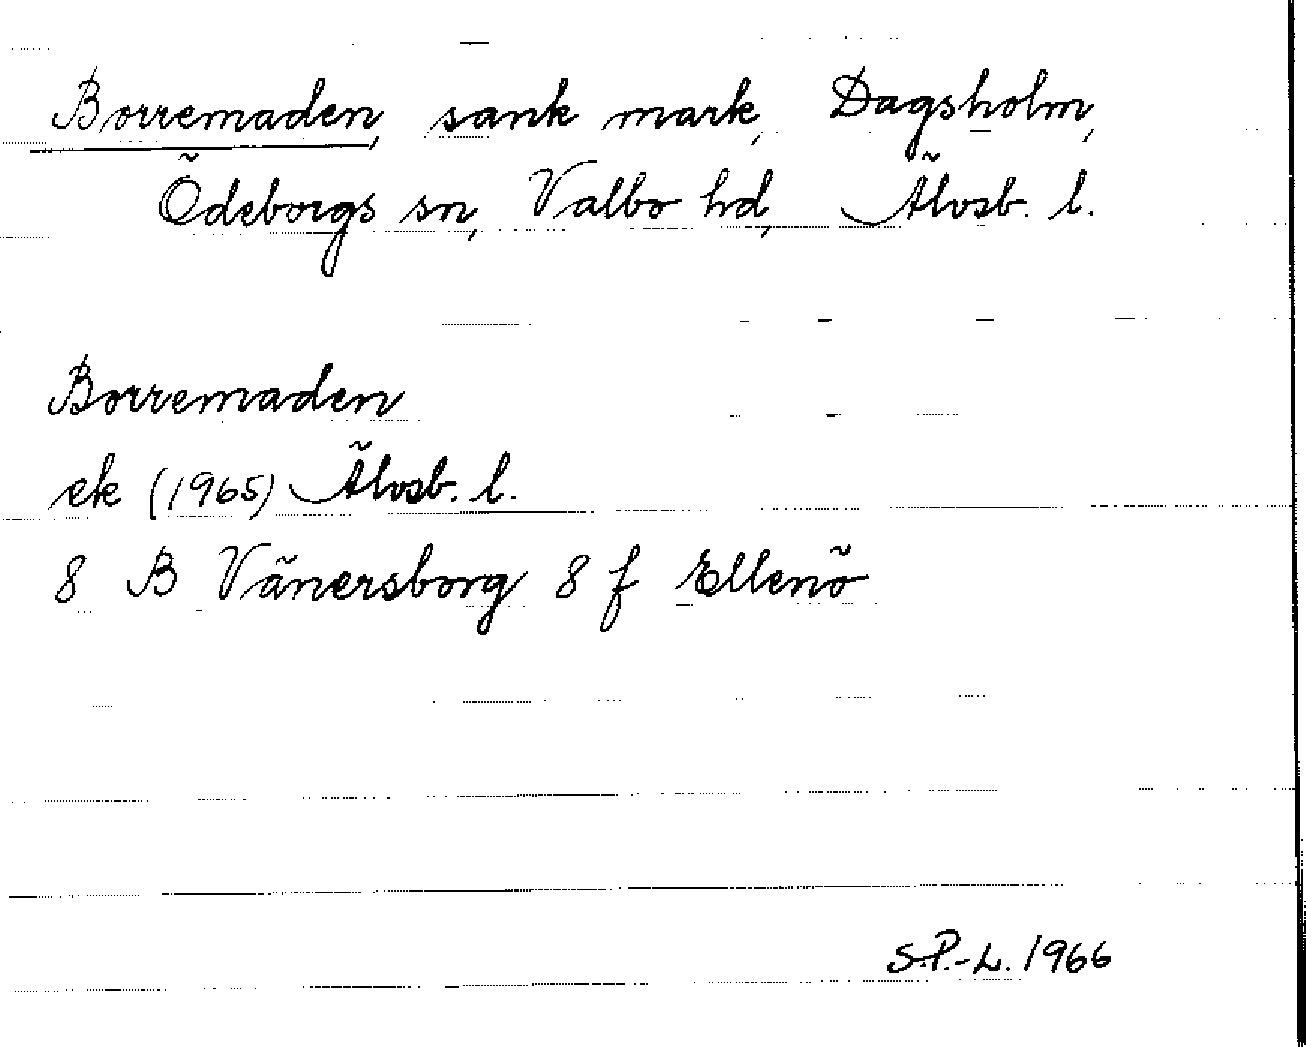 Borremaden, sank mark, Dagsholm,
Ödeborgs sn, Valbo hd, Älvsb. l.
Borremaden
ek (1965) Älvsb. l.
8 B Vänersborg 8 f Ellenö
S.P.-L. 1966